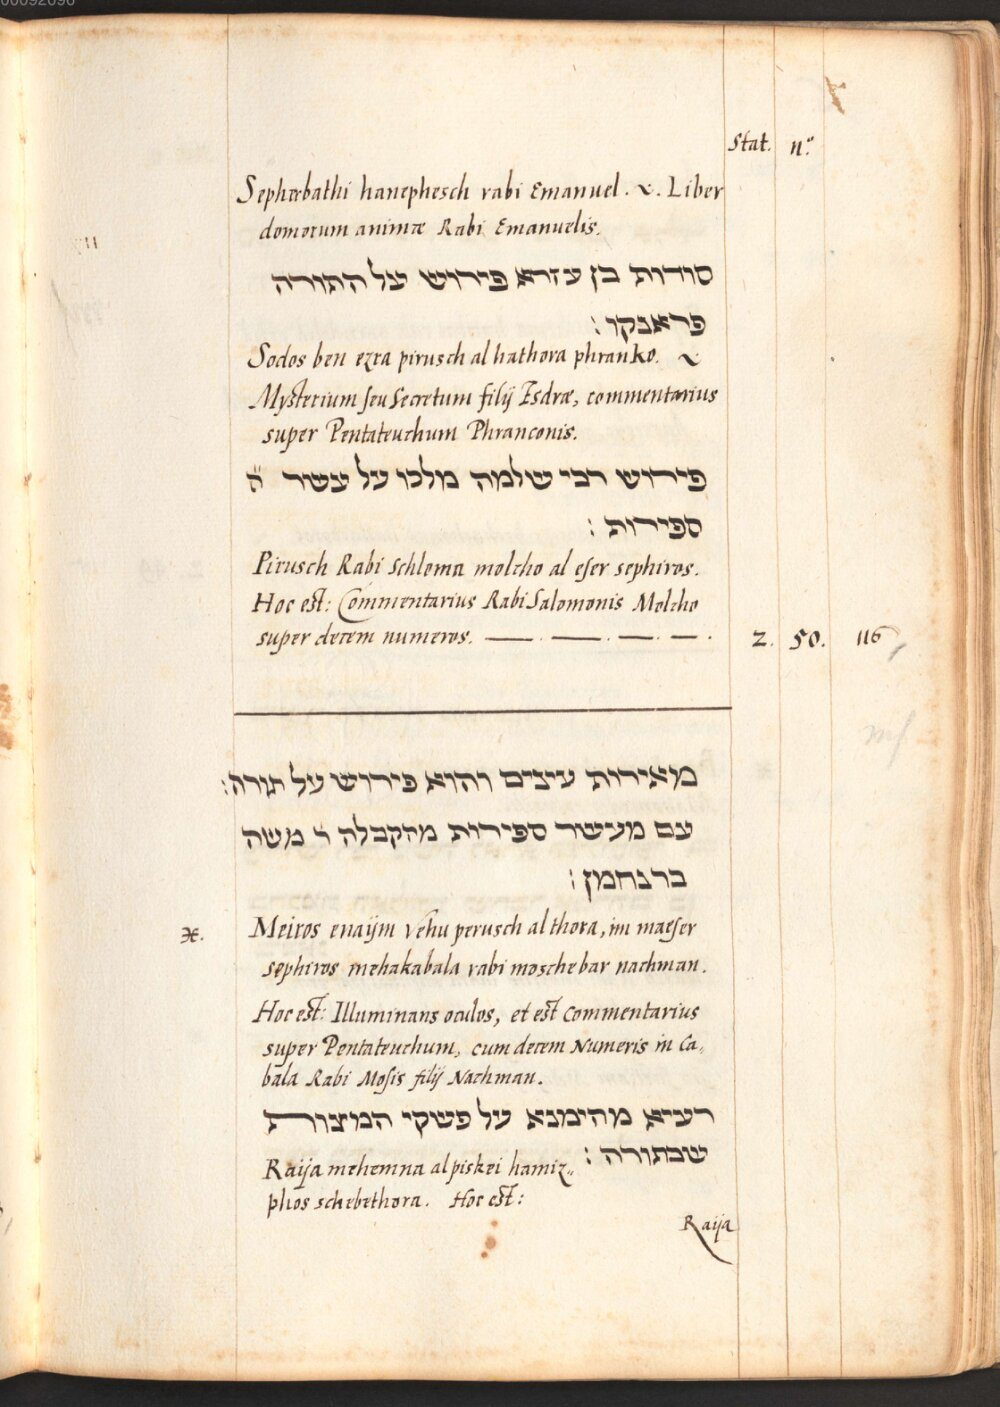 Stat. nº
Sepherbathi hanephesch rabi Emanuel. Liber
domorum animæ Rabi Emanuelis.
סודות בן עזרא פירוש על התורה
פראנקו :
Sodos ben ezra pirusch al hathora phranko.
Mysterium seu Secretum filij Esdræ, commentarius
super Pentateuchum Phranconis.
פירוש רבי שלמה מלכו על עשר
ספירות :
Pirusch Rabi Schloma molcho al eser sephiros.
Hoc est: Commentarius Rabi Salomonis Molcho
super decem numeros. — . — . — . — . 2. 50. 116
מאירות עיצים והוא פירוש על תורה :
עם מעשר ספירות מהקבלה ר משה
ברנחמן :
æ. Meiros enaijm vehu perusch al thora, im maeser
sephiros mehakabala rabi mosche bar nachman.
Hoc est: Illuminans oculos, et est Commentarius
super Pentateuchum, cum decem Numeris in Ca,
bala Rabi Mosis filij Nachman.
רעיא מהימנא על פשקי המצות
שבתורה :
Raija mehemna al piskei hamiz,,
phos schebethora. Hoc est:
Raija